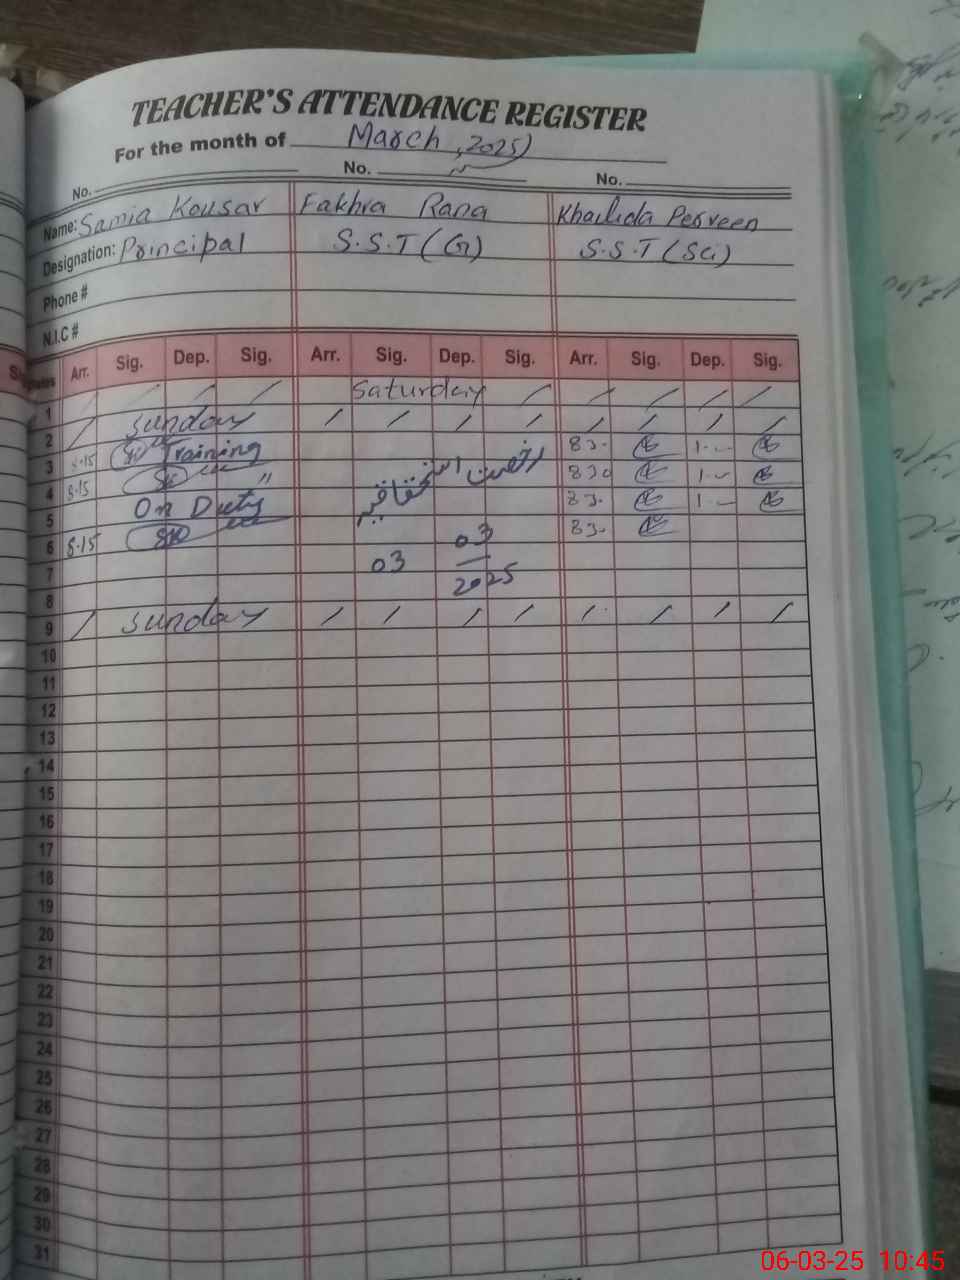 TEACHER'S ATTENDANCE REGISTER
For the month of March, 2025
No. No. No.
Name: Samia Kousar Fakhra Rana Khailida Perveen
Designation: Principal S.S.T (G) S.S.T (Sci)
Phone #
N.I.C #
Arr. Sig. Dep. Sig. Arr. Sig. Dep. Sig. Arr. Sig. Dep. Sig.
1 Saturday
2 Sunday
3 8.15 Training رخصت استحقاقیہ 830 1--
4 8.15 " 830 1--
5 On Duty 830 1--
6 8.15 03 830
7 03
8 2025
9 Sunday
10
11
12
13
14
15
16
17
18
19
20
21
22
23
24
25
26
27
28
29
30
31
06-03-25 10:45